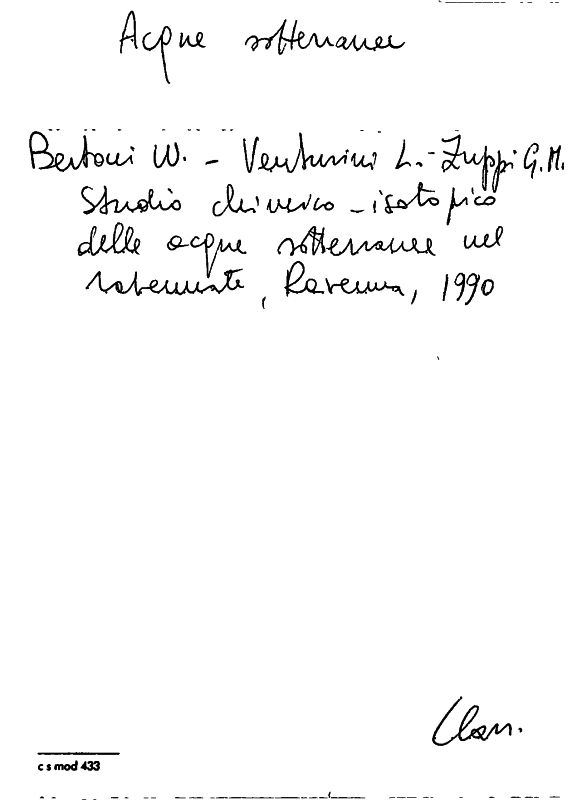 Acque sotterranee
Bertoni W. - Venturini L. - Zuppi G.M.
Studio chimico - isotopico
delle acque sotterranee nel
ravennate, Ravenna, 1990
Clas.
c s mod 433